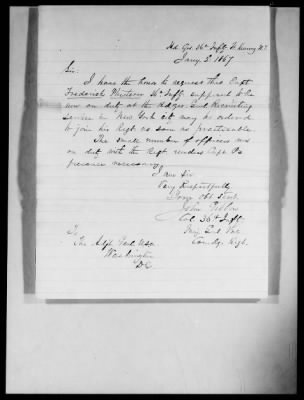 Hd. Qrs. 36th Infty Ft. Kearny N.T.
Jany 5th 1867
Sir:
I have the honor to request that Capt
Frederick 36th Infty
now on duty at the Hd. Qrs. Genl Recruiting
Service in New York City may be ordered
to join his Regt as soon as practicable.
The small number of officers now
on duty with the Regt. renders Capt P's
presence necessary
I am Sir
Very Respectfully
Your Obt Servt
John Gibbon
Col 36th Infty
To
Maj Genl Vol
The Adjt Genl USA
Comdg Regt.
Washington
D.C.